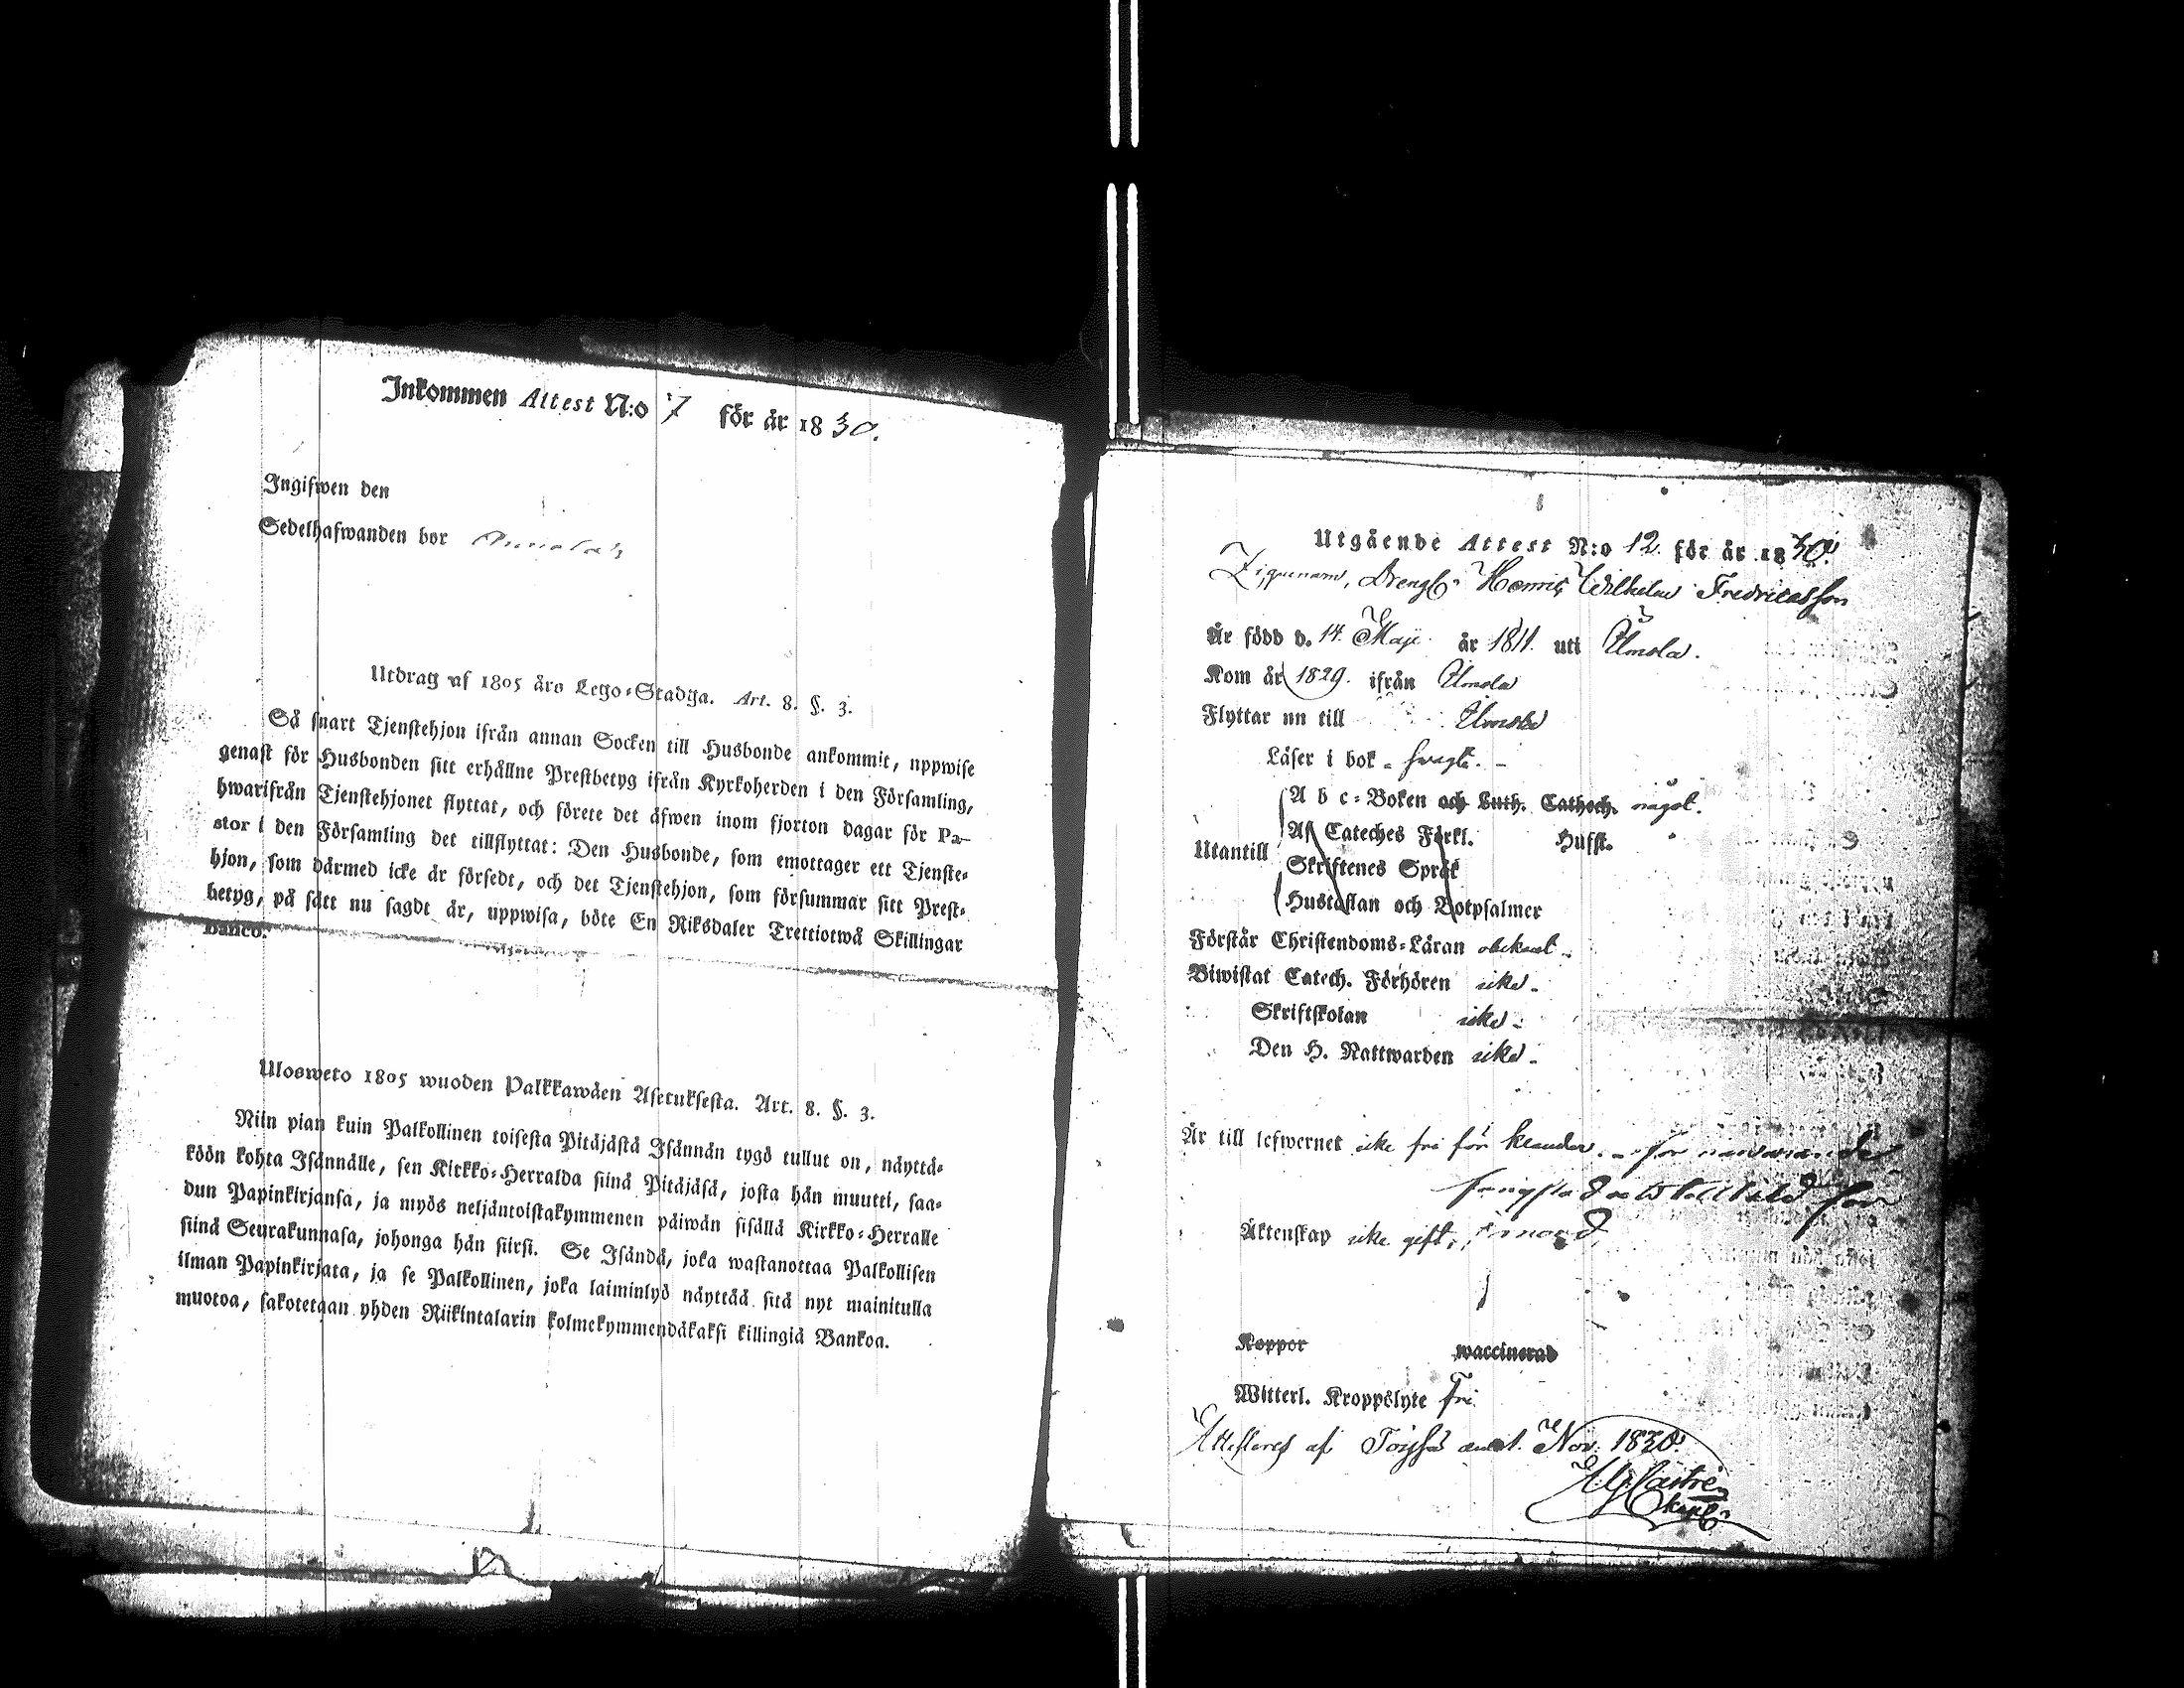 Inkommen Attest N:o 7 för år 1830.
Ingifwen den
Sedelhafwanden bor
Utdrag af 1805 års Lego-Stadga. Art. 8. §. 3.
Så snart Tjenstehjon ifrån annan Socken till Husbonde ankommit, uppwise
genast för Husbonden sitt erhållne Prestbetyg ifrån Kyrkoherden i den Församling,
hwarifrån Tjenstehjonet flyttat, och förete det äfwen inom fjorton dagar för Pa-
stor i den Församling det tillflyttat: Den Husbonde, som emottager ett Tjenste-
hjon, som därmed icke är försedt, och det Tjenstehjon, som försummar sitt Prest-
betyg, på sätt nu sagdt är, uppwisa, böte En Riksdaler Trettiotwå Skillingar
Banco.
Ulosweto 1805 wuoden Palkkawäen Asetuksesta. Art. 8. §. 3.
Niin pian kuin Palkollinen toisesta Pitäjästä Isännän tygö tullut on, näyttä-
köön kohta Isännälle, sen Kirkko-Herralda siinä Pitäjäsä, josta hän muutti, saa-
dun Papinkirjansa, ja myös neljäntoistakymmenen päiwän sisällä Kirkko-Herralle
siinä Seurakunnasa, johonga hän siirsi. Se Isändä, joka wastanottaa Palkollisen
ilman Papinkirjata, ja se Palkollinen, joka laiminlyö näyttää sitä nyt mainitulla
muotoa, sakotetaan yhden Riikintalarin kolmekymmendäkaksi killingiä Bankoa.
Utgående Attest N:o 12. för år 1830.
Drengen Henric Wilhelm Fredricasson
Är född d. 14 Maji år 1811. uti Ilmola.
Kom år 1829. ifrån Ilmola
Flyttar nu till Ilmola
Läser i bok - swagt. -
A b c-Boken och Luth. Cathech. något.
Af Cateches Förkl. Husst.
Utantill
Skriftenes Språk
Hustaflan och Botpsalmer
Förstår Christendoms-Läran obekant -
Biwistat Catech. Förhören icke -
Skriftskolan icke -
Den H. Nattwarden icke -
Är till lefwernet icke fri för klander. - för närwarande
för
Äktenskap icke gift,
Koppor waccinerad
Witterl. Kroppslyte Fri
Attesteras af Töysä den 1. Nov. 1830.
Castrén